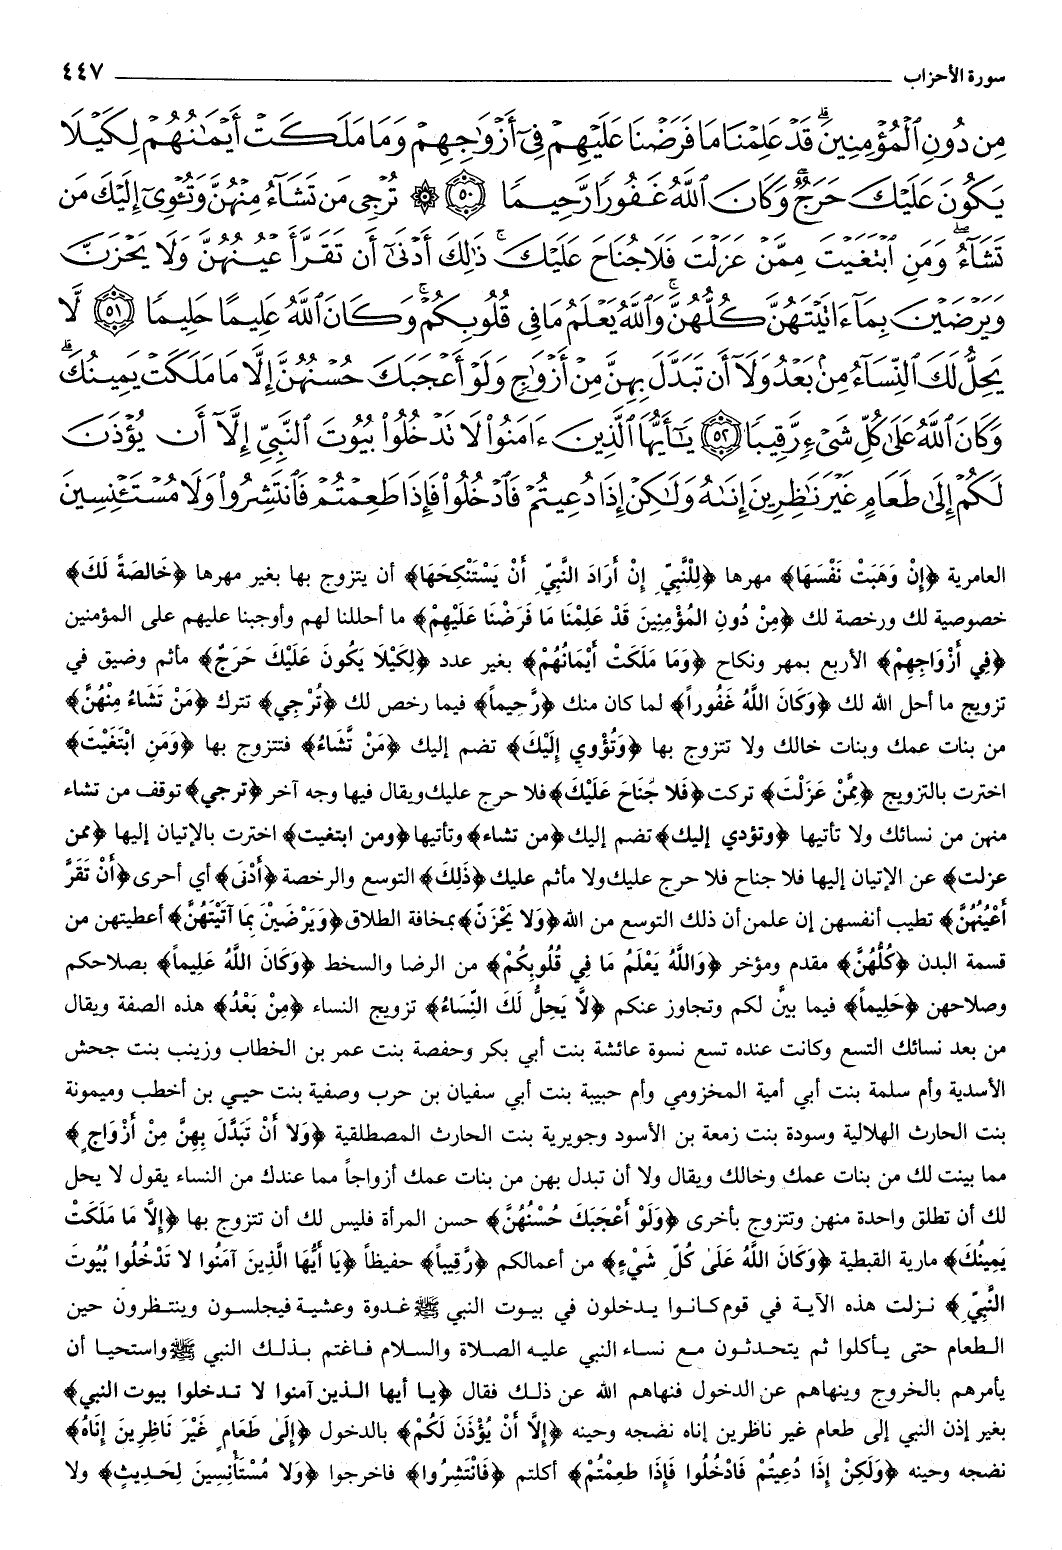 سورة الأحزاب ٤٤٧
مِن دُونِ ٱلْمُؤْمِنِينَ ۗ قَدْ عَلِمْنَا مَا فَرَضْنَا عَلَيْهِمْ فِىٓ أَزْوَٰجِهِمْ وَمَا مَلَكَتْ أَيْمَـٰنُهُمْ لِكَيْلَا
يَكُونَ عَلَيْكَ حَرَجٌ ۗ وَكَانَ ٱللَّهُ غَفُورًا رَّحِيمًا ﴿٥٠﴾ ۞ تُرْجِى مَن تَشَآءُ مِنْهُنَّ وَتُـْٔوِىٓ إِلَيْكَ مَن
تَشَآءُ ۖ وَمَنِ ٱبْتَغَيْتَ مِمَّنْ عَزَلْتَ فَلَا جُنَاحَ عَلَيْكَ ۚ ذَٰلِكَ أَدْنَىٰٓ أَن تَقَرَّ أَعْيُنُهُنَّ وَلَا يَحْزَنَّ
وَيَرْضَيْنَ بِمَآ ءَاتَيْتَهُنَّ كُلُّهُنَّ ۚ وَٱللَّهُ يَعْلَمُ مَا فِى قُلُوبِكُمْ ۚ وَكَانَ ٱللَّهُ عَلِيمًا حَلِيمًا ﴿٥١﴾ لَّا
يَحِلُّ لَكَ ٱلنِّسَآءُ مِنۢ بَعْدُ وَلَآ أَن تَبَدَّلَ بِهِنَّ مِنْ أَزْوَٰجٍ وَلَوْ أَعْجَبَكَ حُسْنُهُنَّ إِلَّا مَا مَلَكَتْ يَمِينُكَ ۗ
وَكَانَ ٱللَّهُ عَلَىٰ كُلِّ شَىْءٍ رَّقِيبًا ﴿٥٢﴾ يَـٰٓأَيُّهَا ٱلَّذِينَ ءَامَنُوا۟ لَا تَدْخُلُوا۟ بُيُوتَ ٱلنَّبِىِّ إِلَّآ أَن يُؤْذَنَ
لَكُمْ إِلَىٰ طَعَامٍ غَيْرَ نَـٰظِرِينَ إِنَىٰهُ وَلَـٰكِنْ إِذَا دُعِيتُمْ فَٱدْخُلُوا۟ فَإِذَا طَعِمْتُمْ فَٱنتَشِرُوا۟ وَلَا مُسْتَـْٔنِسِينَ
العامرية ﴿إِنْ وَهَبَتْ نَفْسَهَا﴾ مهرها ﴿لِلنَّبِيِّ إِنْ أَرَادَ النَّبِيِّ أَنْ يَسْتَنْكِحَهَا﴾ أن يتزوج بها بغير مهرها ﴿خَالِصَةً لَكَ﴾
خصوصية لك ورخصة لك ﴿مِنْ دُونِ المُؤْمِنِينَ قَدْ عَلِمْنَا مَا فَرَضْنَا عَلَيْهِمْ﴾ ما أحللنا لهم وأوجبنا عليهم على المؤمنين
﴿فِي أَزْوَاجِهِمْ﴾ الأربع بمهر ونكاح ﴿وَمَا مَلَكَتْ أَيْمَانُهُمْ﴾ بغير عدد ﴿لِكَيْلَا يَكُونَ عَلَيْكَ حَرَجٌ﴾ مأثم وضيق في
تزويج ما أحل الله لك ﴿وَكَانَ اللَّهُ غَفُوراً﴾ لما كان منك ﴿رَّحِيماً﴾ فيما رخص لك ﴿تُرْجِي﴾ تترك ﴿مَنْ تَشَاءُ مِنْهُنَّ﴾
من بنات عمك وبنات خالك ولا تتزوج بها ﴿وَتُؤْوِي إِلَيْكَ﴾ تضم إليك ﴿مَنْ تَّشَاءُ﴾ فتتزوج بها ﴿وَمَنِ ابْتَغَيْتَ﴾
اخترت بالتزويج ﴿مِمَّنْ عَزَلْتَ﴾ تركت ﴿فَلا جُنَاحَ عَلَيْكَ﴾ فلا حرج عليك ويقال فيها وجه آخر ﴿ترجي﴾ توقف من تشاء
منهن من نسائك ولا تأتيها ﴿وتؤدي إليك﴾ تضم إليك ﴿من تشاء﴾ وتأتيها ﴿ومن ابتغيت﴾ اخترت بالإتيان إليها ﴿ممن
عزلت﴾ عن الإتيان إليها فلا جناح فلا حرج عليك ولا مأثم عليك ﴿ذَلِكَ﴾ التوسع والرخصة ﴿أَدْنَى﴾ أي أحرى ﴿أَنْ تَقَرَّ
أَعْيُنُهُنَّ﴾ تطيب أنفسهن إن علمن أن ذلك التوسع من الله ﴿وَلا يَحْزَنَّ﴾ بمخافة الطلاق ﴿وَيَرْضَيْنَ بِمَا آتَيْتَهُنَّ﴾ أعطيتهن من
قسمة البدن ﴿كُلُّهُنَّ﴾ مقدم ومؤخر ﴿وَاللَّهُ يَعْلَمُ مَا فِي قُلُوبِكُمْ﴾ من الرضا والسخط ﴿وَكَانَ اللَّهُ عَلِيماً﴾ بصلاحكم
وصلاحهن ﴿حَلِيماً﴾ فيما بينَّ لكم وتجاوز عنكم ﴿لَّا يَحِلُّ لَكَ النِّسَاءُ﴾ تزويج النساء ﴿مِنْ بَعْدُ﴾ هذه الصفة ويقال
من بعد نسائك التسع وكانت عنده تسع نسوة عائشة بنت أبي بكر وحفصة بنت عمر بن الخطاب وزينب بنت جحش
الأسدية وأم سلمة بنت أبي أمية المخزومي وأم حبيبة بنت أبي سفيان بن حرب وصفية بنت حيي بن أخطب وميمونة
بنت الحارث الهلالية وسودة بنت زمعة بن الأسود وجويرية بنت الحارث المصطلقية ﴿وَلا أَنْ تَبَدَّلَ بِهِنَّ مِنْ أَزْوَاجٍ﴾
مما بينت لك من بنات عمك وخالك ويقال ولا أن تبدل بهن من بنات عمك أزواجاً مما عندك من النساء يقول لا يحل
لك أن تطلق واحدة منهن وتتزوج بأخرى ﴿وَلَوْ أَعْجَبَكَ حُسْنُهُنَّ﴾ حسن المرأة فليس لك أن تتزوج بها ﴿إِلَّا مَا مَلَكَتْ
يَمِينُكَ﴾ مارية القبطية ﴿وَكَانَ اللَّهُ عَلَىٰ كُلِّ شَيْءٍ﴾ من أعمالكم ﴿رَّقِيباً﴾ حفيظاً ﴿يَا أَيُّهَا الَّذِينَ آمَنُوا لا تَدْخُلُوا بُيُوتَ
النَّبِيِّ﴾ نزلت هذه الآية في قوم كانوا يدخلون في بيوت النبي ﷺ غدوة وعشية فيجلسون وينتظرون حين
الطعام حتى يأكلوا ثم يتحدثون مع نساء النبي عليه الصلاة والسلام فاغتم بذلك النبي ﷺ واستحيا أن
يأمرهم بالخروج وينهاهم عن الدخول فنهاهم الله عن ذلك فقال ﴿يا أيها الذين آمنوا لا تدخلوا بيوت النبي﴾
بغير إذن النبي إلى طعام غير ناظرين إناه نضجه وحينه ﴿إِلَّا أَنْ يُؤْذَنَ لَكُمْ﴾ بالدخول ﴿إِلَىٰ طَعَامٍ غَيْرَ نَاظِرِينَ إِنَاهُ﴾
نضجه وحينه ﴿وَلَكِنْ إِذَا دُعِيتُمْ فَادْخُلُوا فَإِذَا طَعِمْتُمْ﴾ أكلتم ﴿فَانْتَشِرُوا﴾ فاخرجوا ﴿وَلا مُسْتَأْنِسِينَ لِحَدِيثٍ﴾ ولا